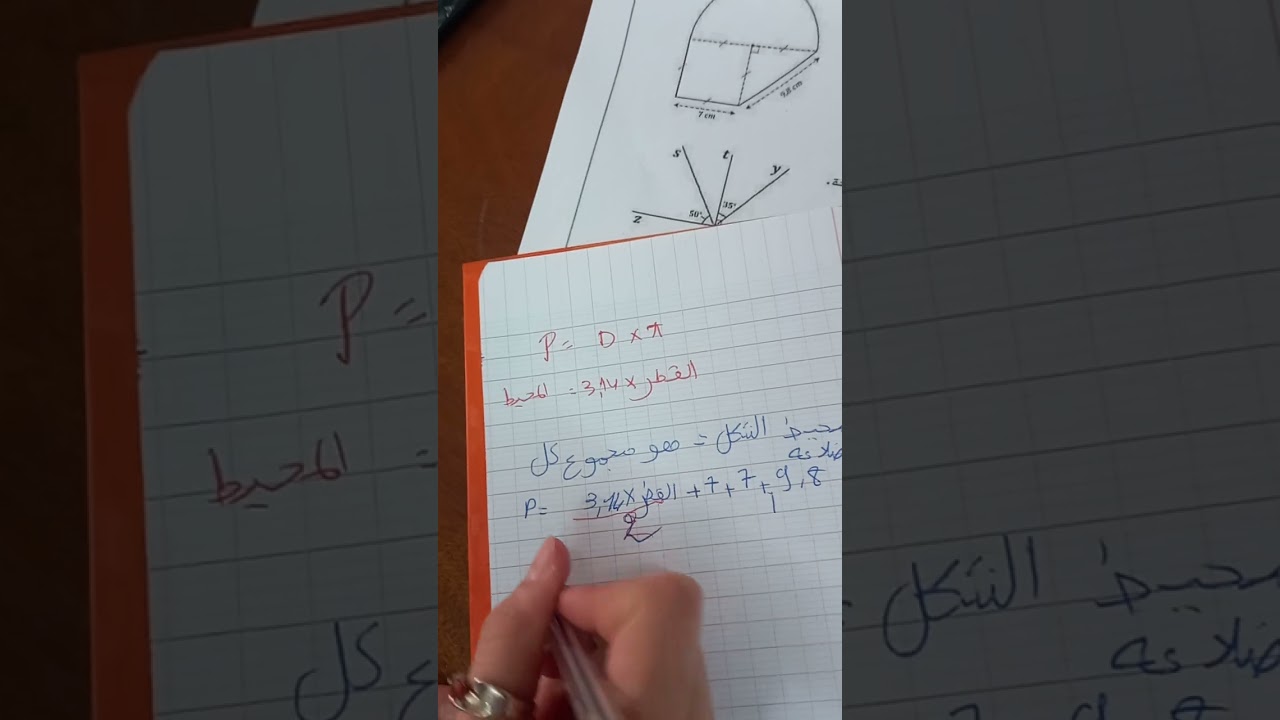 7 cm
9,8 cm
s
t
y
z
50°
35°
P = D x π
المحيط = 3,14 x القطر
محيط الشكل = هو مجموع كل
أضلاعه
P = 3,14 x القطر + 7 + 7 + 9,8
2